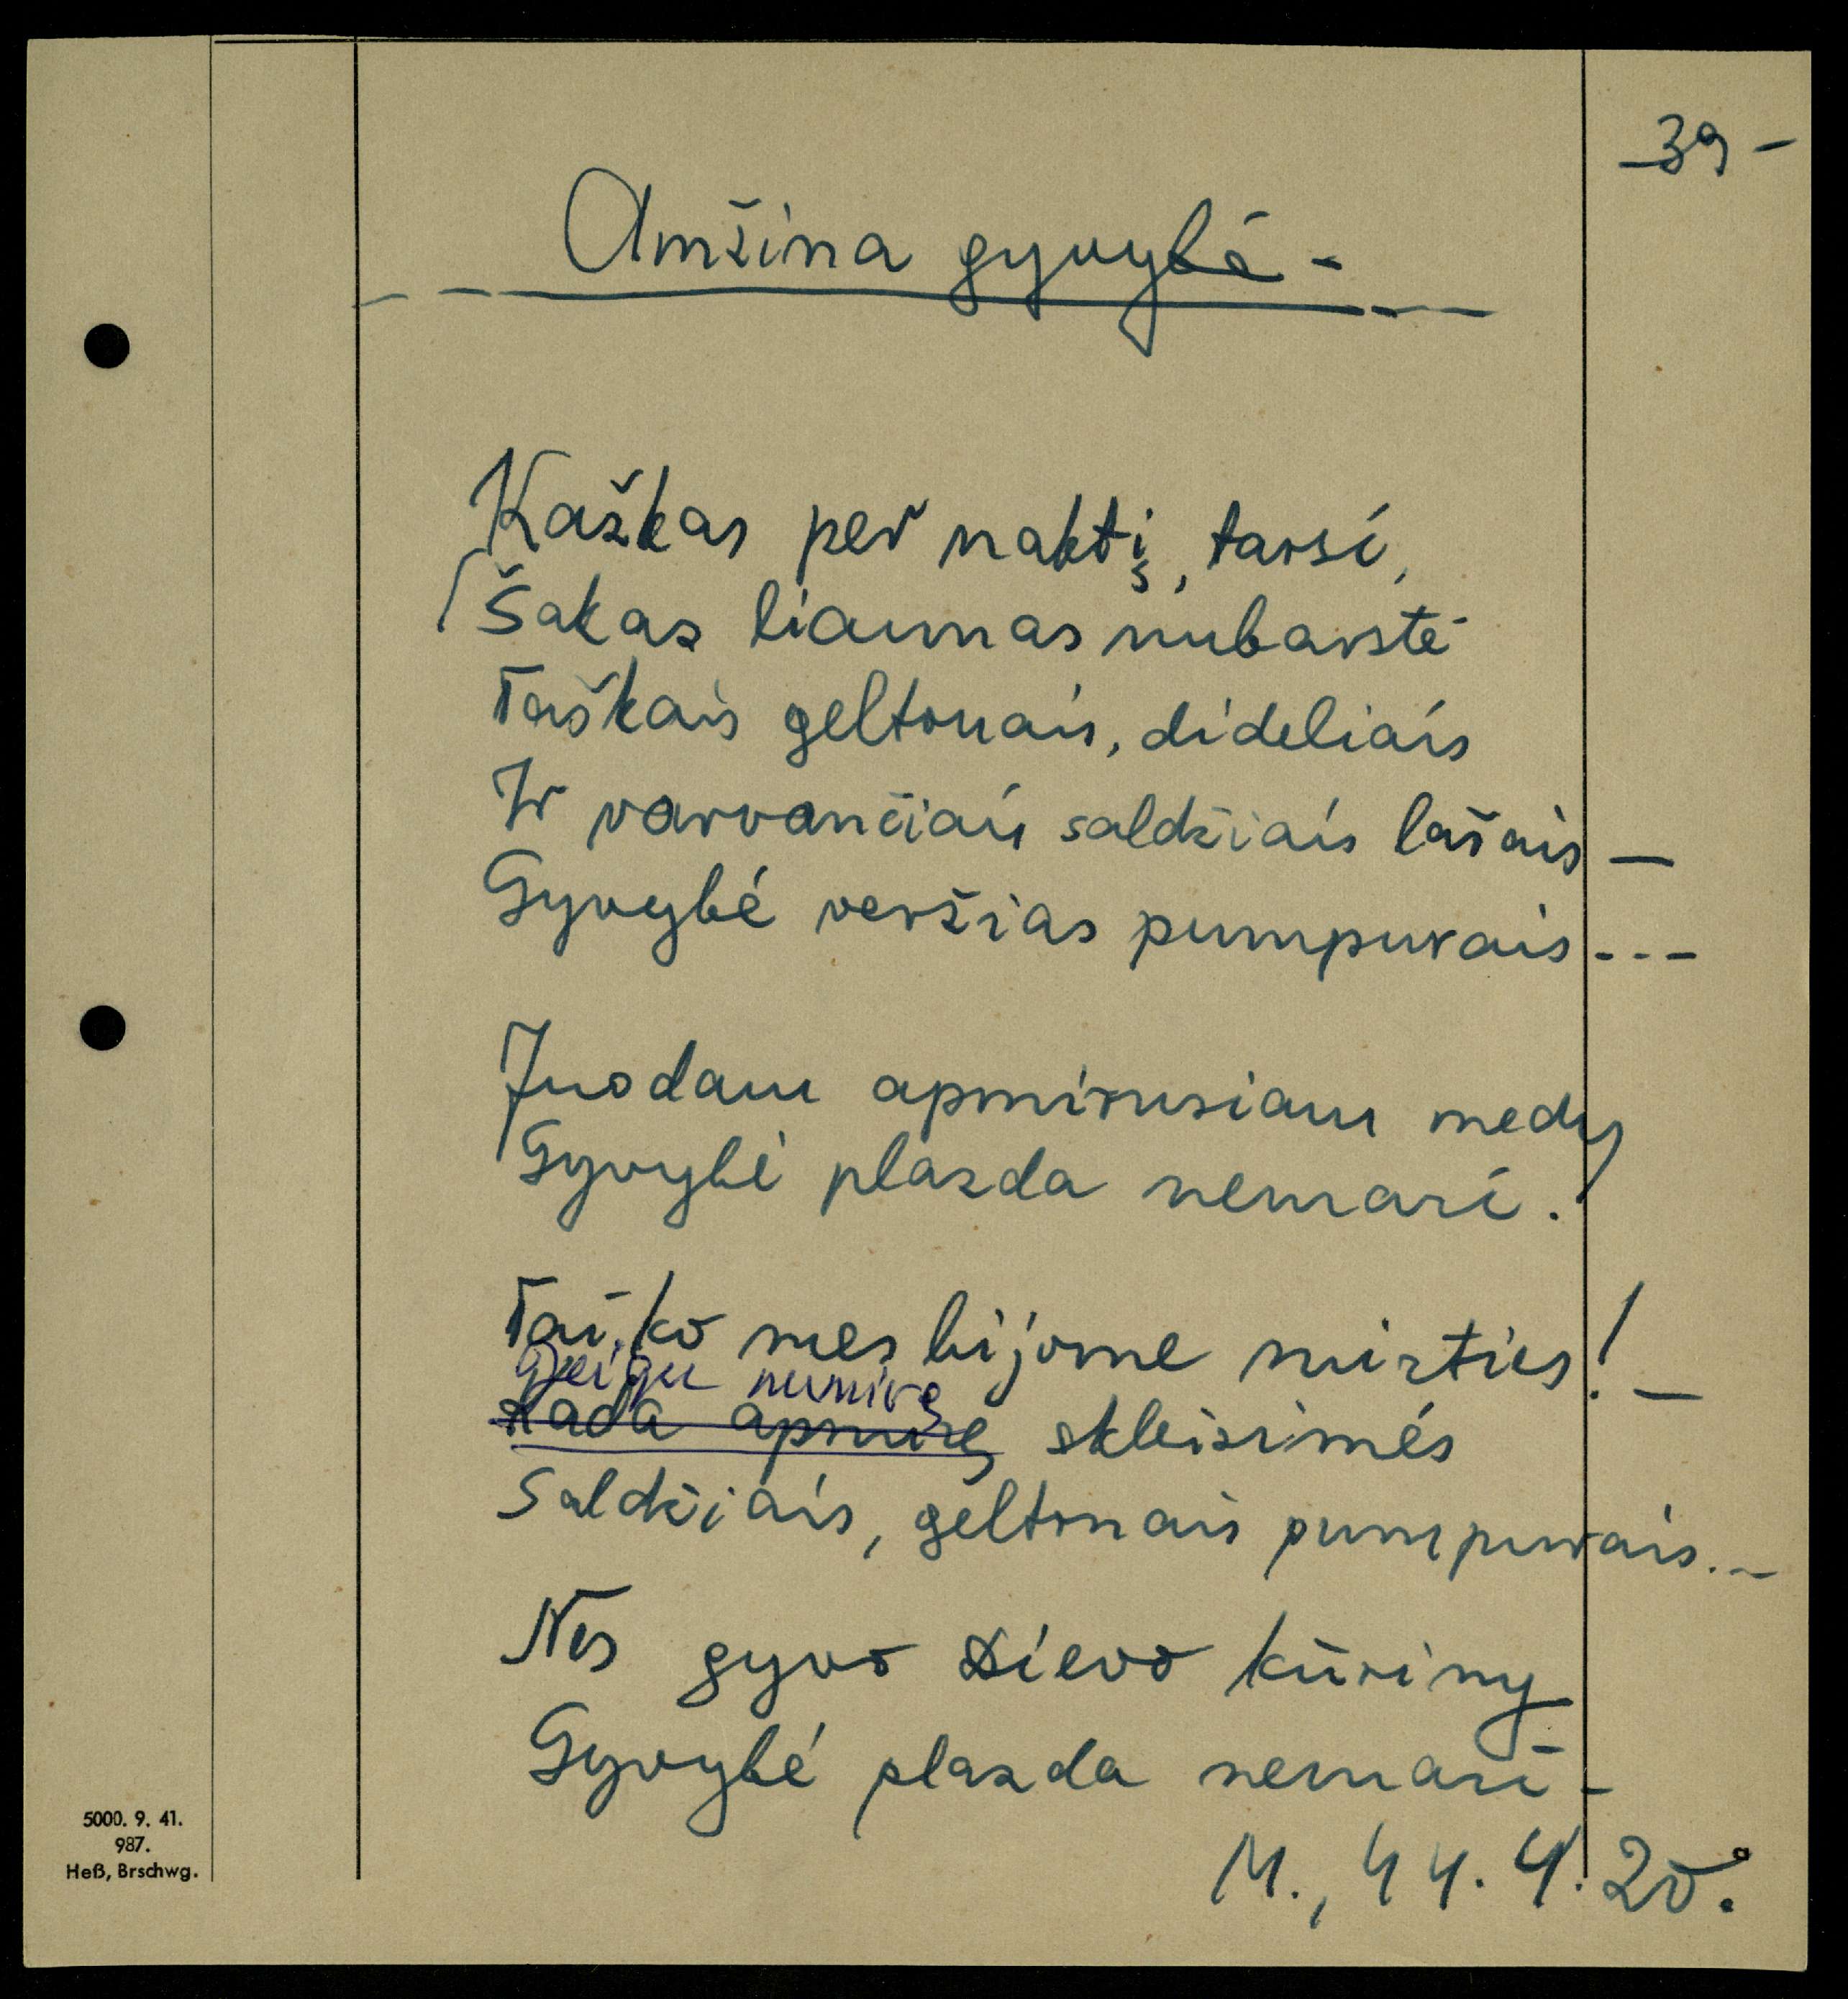 -39-
Amžina gyvybė -
Kažkas per naktį, tarsi,
Šakas liaunas nubarstė
Taškais geltonais, dideliais
Ir varvančiais saldžiais lašais —
Gyvybė veržias pumpurais ---
Juodam apmirusiam medy
Gyvybė plazda nemari.
Tai ko mes bijome mirties! —
Jeigu numirę
Kada apmirę skleisimės
Saldžiais, geltonais pumpurais...
Nes gyvo Dievo kūriny
Gyvybė plazda nemari -
M., 44.4.20.
5000. 9. 41.
987.
Heß, Brschwg.